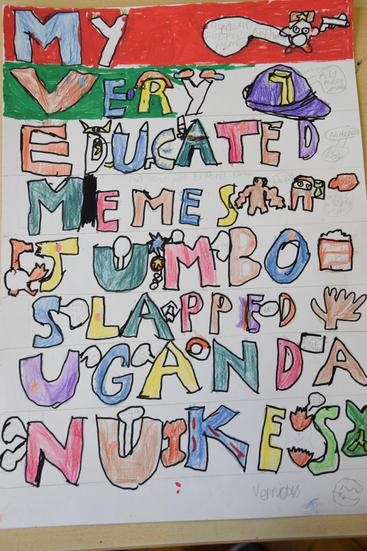 MY
VERY
EDUCATED
MEMES
JUMBO
SLAPPED
UGANDA
NUKES